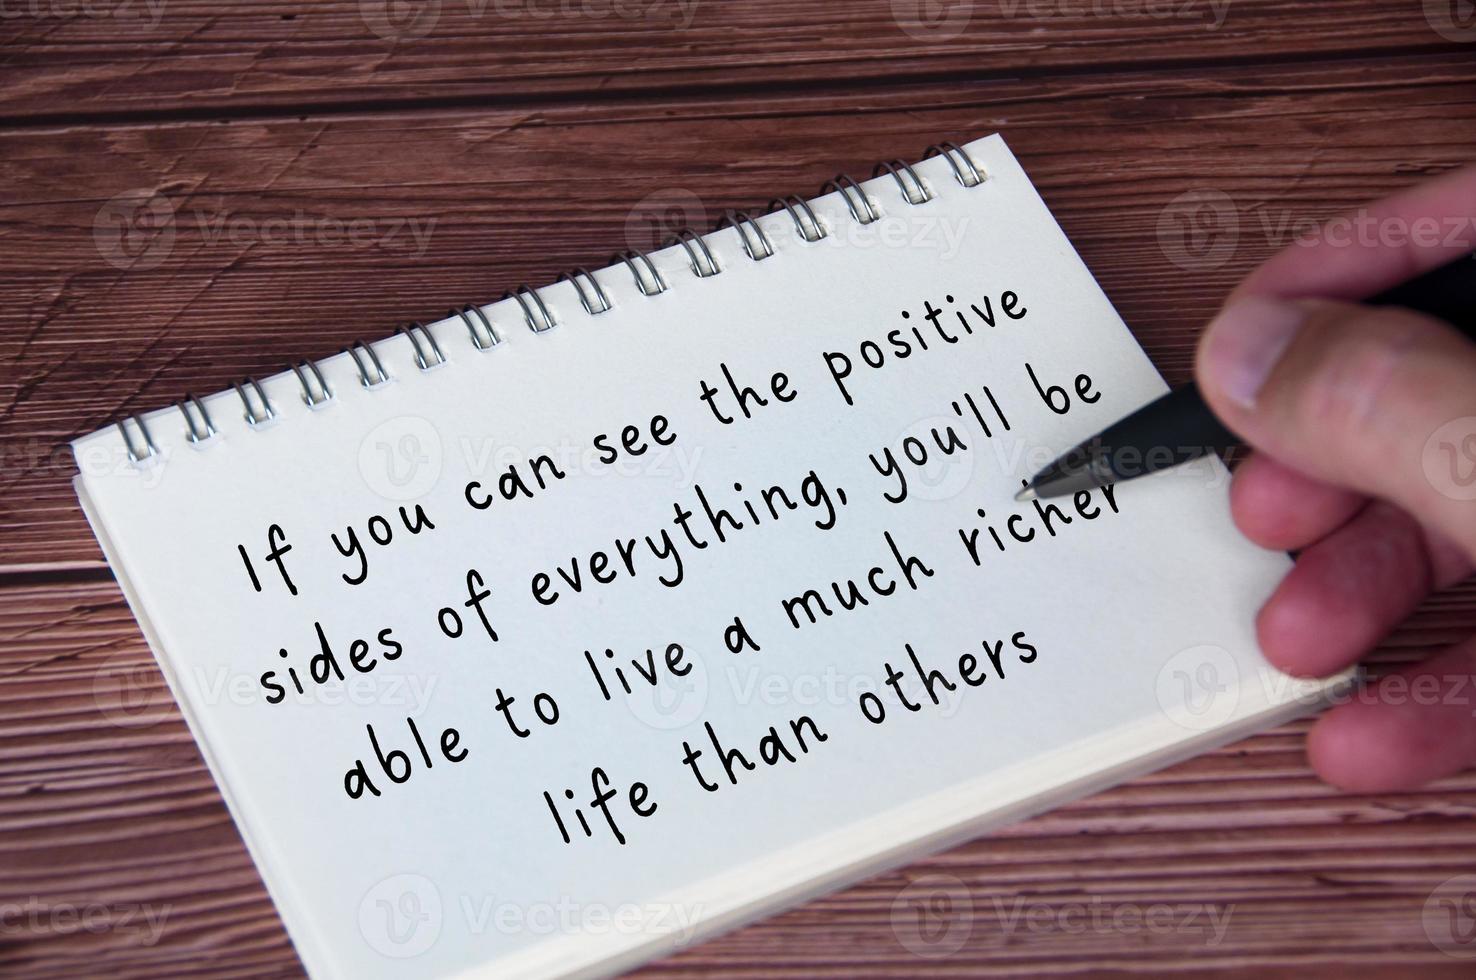 If you can see the positive
sides of everything, you'll be
able to live a much richer
life than others
Vecteezy